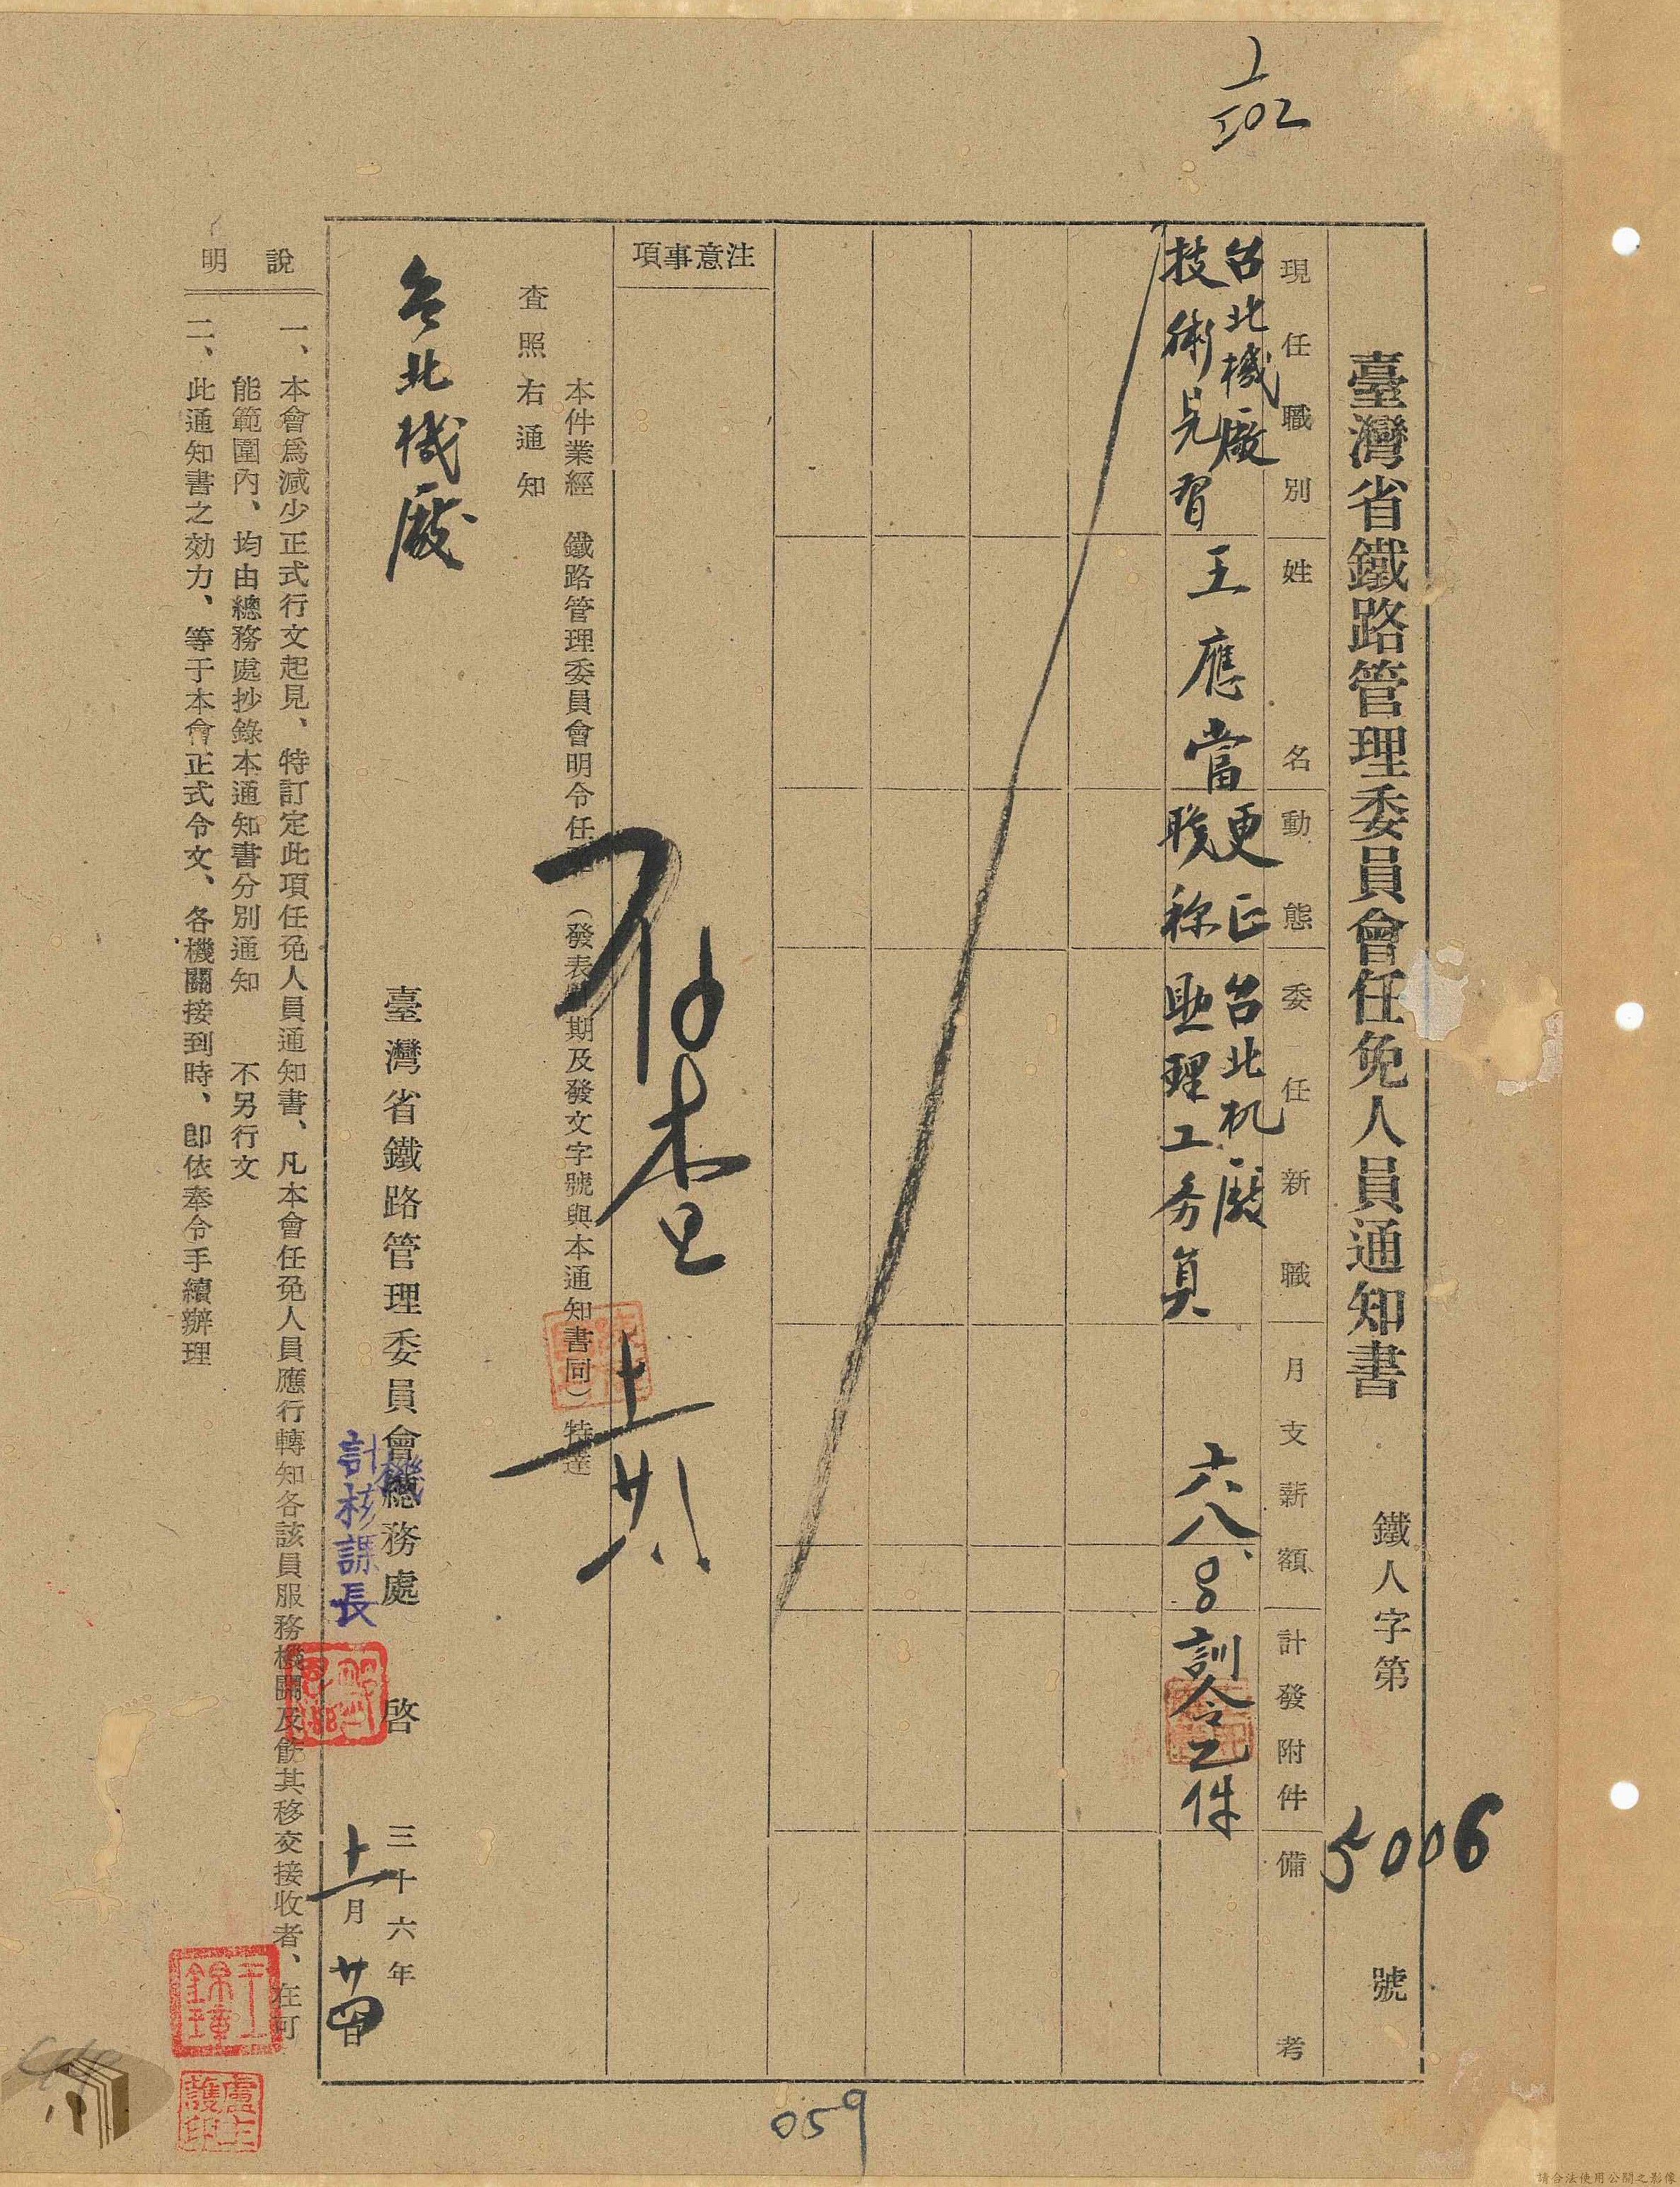 1/502
臺灣省鐵路管理委員會任免人員通知書
鐵人字第5006號
現任職別
姓名
動態
委任新職
月支薪額
計發附件
備考
台北機廠
技術見習
王應當
更正
職称
台北机廠
助理工务員
訓令乙件
注意事項
本件業經 鐵路管理委員會明令任(發表日期及發文字號與本通知書同)特達
查照右通知
台北機廠
存查
十一
廿八
臺灣省鐵路管理委員會總務處 啓
三十六年
十一月廿四日
計核課長
說明
一、本會爲減少正式行文起見、特訂定此項任免人員通知書、凡本會任免人員應行轉知各該員服務機關及飭其移交接收者、在可
能範圍內、均由總務處抄錄本通知書分別通知 不另行文
二、此通知書之効力、等于本會正式令文、各機關接到時、卽依奉令手續辦理
059
請合法使用公開之影像